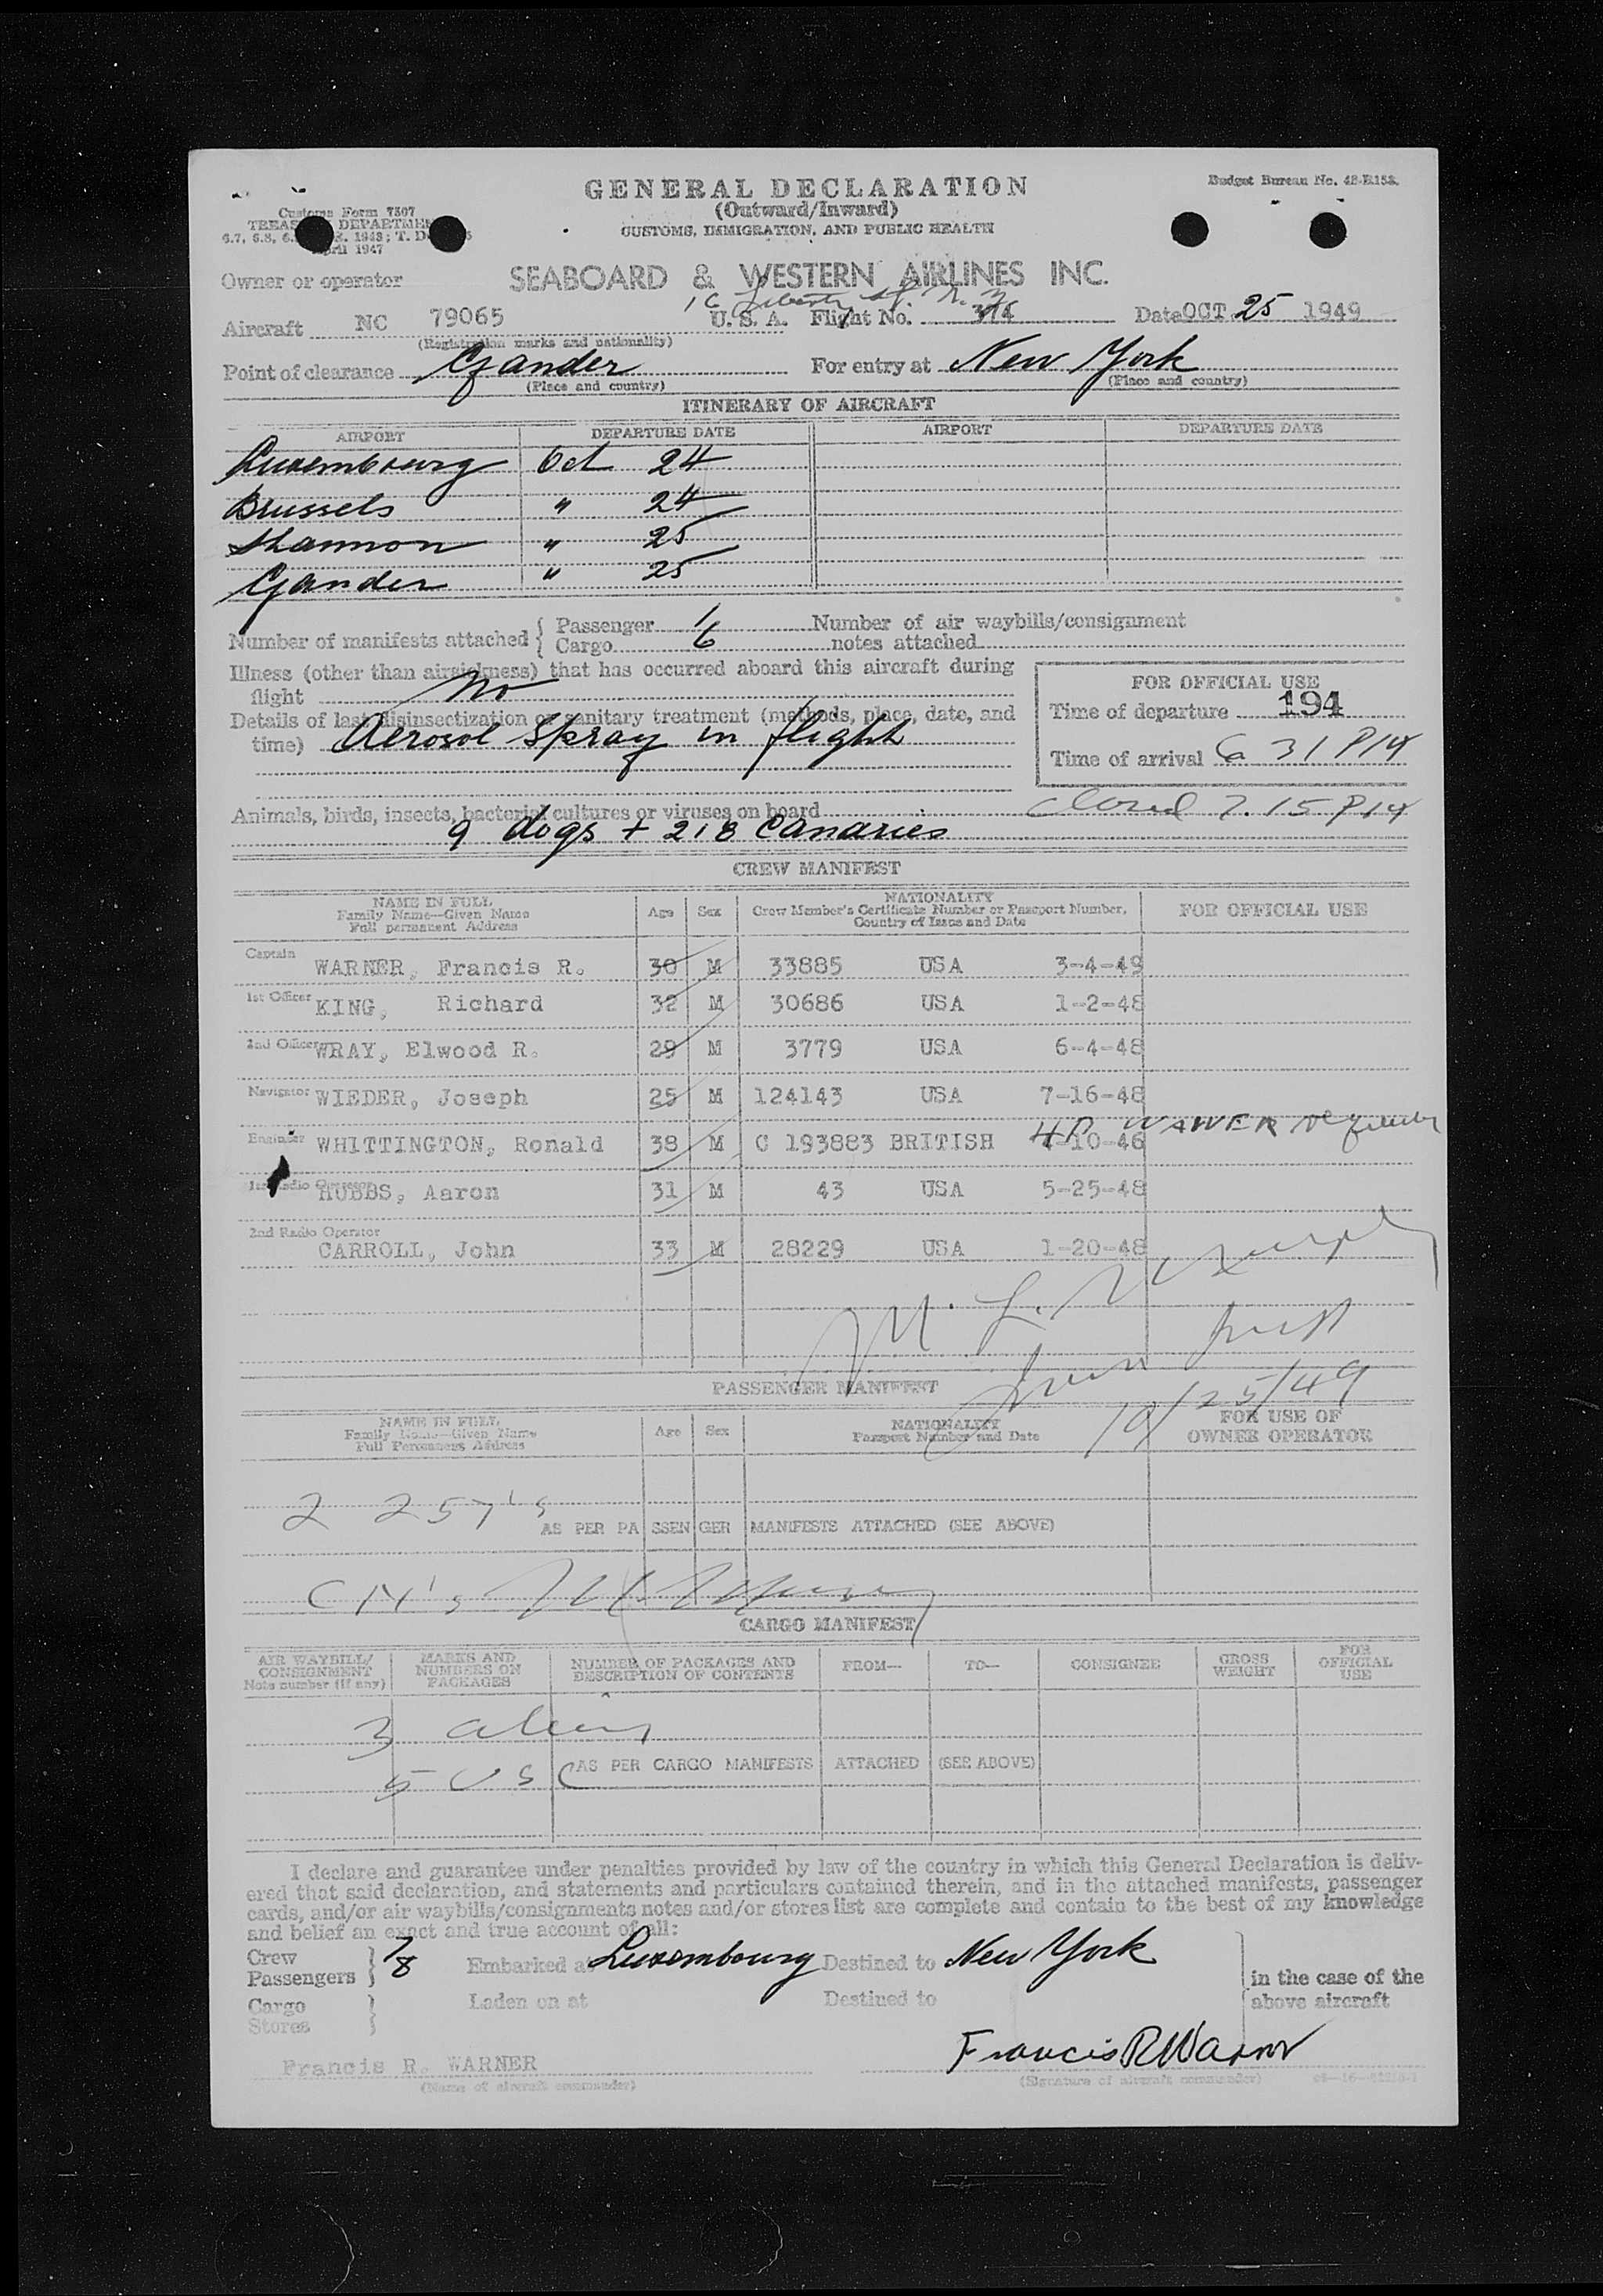 GENERAL DECLARATION
Budget Bureau No.
(Outward/Inward)
Customs Form 7507
CUSTOMS, IMMIGRATION, AND PUBLIC HEALTH
April 1947
Owner or operator SEABOARD & WESTERN AIRLINES INC.
16 Liberty St. N.Y.
Aircraft NC 79065 U. S. A. Flight No. Date OCT 25 1949
(Registration marks and nationality)
Point of clearance Gander For entry at New York
(Place and country) (Place and country)
ITINERARY OF AIRCRAFT
AIRPORT DEPARTURE DATE AIRPORT DEPARTURE DATE
Luxembourg Oct 24
Brussels " 24
Shannon " 25
Gander " 25
Number of manifests attached { Passenger 1 Number of air waybills/consignment
Cargo 6 notes attached
Illness (other than airsickness) that has occurred aboard this aircraft during
flight No
FOR OFFICIAL USE
Details of last disinsectization or sanitary treatment (methods, place, date, and
time) Aerosol Spray in flight
Time of departure 194
Time of arrival 6 31 PM
Animals, birds, insects, bacterial cultures or viruses on board
7.15 PM
9 dogs + 218 Canaries
CREW MANIFEST
NAME IN FULL
Family Name—Given Name
Full permanent Address
Age Sex
NATIONALITY
Crew Member's Certificate Number or Passport Number,
Country of Issue and Date
FOR OFFICIAL USE
Captain WARNER, Francis R. 30 M 33885 USA 3-4-49
1st Officer KING, Richard 32 M 30686 USA 1-2-48
2nd Officer WRAY, Elwood R. 29 M 3779 USA 6-4-48
Navigator WIEDER, Joseph 25 M 124143 USA 7-16-48
Engineer WHITTINGTON, Ronald 38 M C 193883 BRITISH -10-46
1st Radio Operator HUBBS, Aaron 31 M 43 USA 5-25-48
2nd Radio Operator
CARROLL, John 33 M 28229 USA 1-20-48
10/25/49
PASSENGER MANIFEST
NAME IN FULL
Family Name—Given Name
Full Permanent Address
Age Sex
NATIONALITY
Passport Number and Date
FOR USE OF
OWNER OPERATOR
2 257's
AS PER PASSENGER MANIFESTS ATTACHED (SEE ABOVE)
CARGO MANIFEST
AIR WAYBILL/
CONSIGNMENT
Note number (if any)
MARKS AND
NUMBERS ON
PACKAGES
NUMBER OF PACKAGES AND
DESCRIPTION OF CONTENTS
FROM— TO— CONSIGNEE
GROSS
WEIGHT
FOR
OFFICIAL
USE
3 aliens
5 USC
AS PER CARGO MANIFESTS ATTACHED (SEE ABOVE)
I declare and guarantee under penalties provided by law of the country in which this General Declaration is deliv-
ered that said declaration, and statements and particulars contained therein, and in the attached manifests, passenger
cards, and/or air waybills/consignments notes and/or stores list are complete and contain to the best of my knowledge
and belief an exact and true account of all:
Crew 7
Passengers 8 Embarked at Luxembourg Destined to New York
in the case of the
above aircraft
Cargo
Stores
Laden on at Destined to
Francis R. WARNER Francis R Warner
(Name of aircraft commander) (Signature of aircraft commander)